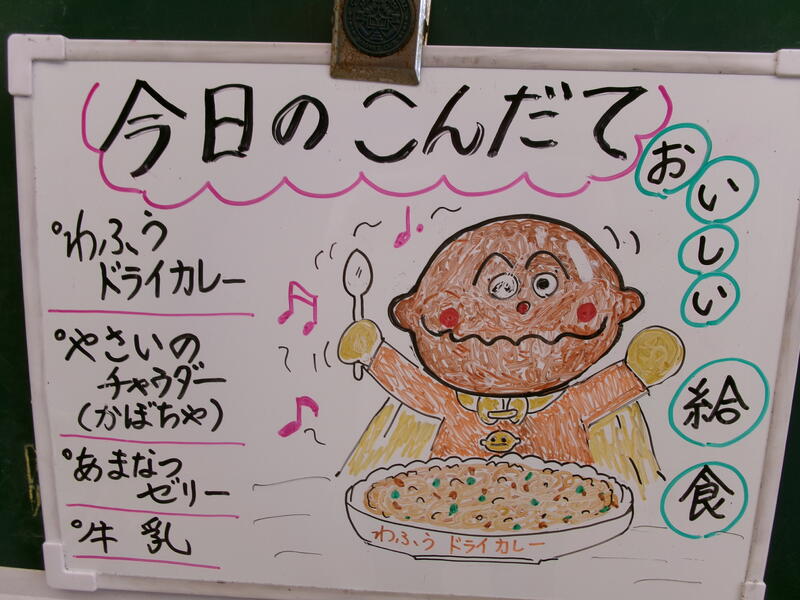 今日のこんだて
おいしい
給
食
°わふう
ドライカレー
°やさいの
チャウダー
(かぼちゃ)
°あまなつ
ゼリー
°牛乳
わふう ドライカレー